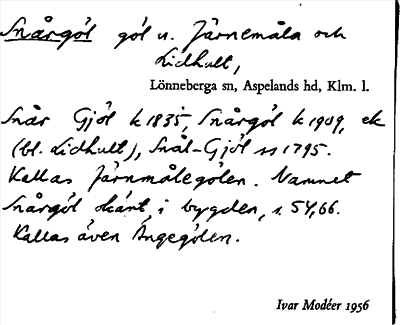 Snårgöl göl u. Järnemåla och
Lidhult,
Lönneberga sn, Aspelands hd, Klm. l.
Snår Gjöl k 1835, Snårgöl k 1909, ek
(bl. Lidhult), Snål-Gjöl ss 1795.
Kallas Järnmålegölen. Namnet
Snårgöl okänt i bygden, s. 54,66.
Kallas även Ängegölen.
Ivar Modéer 1956